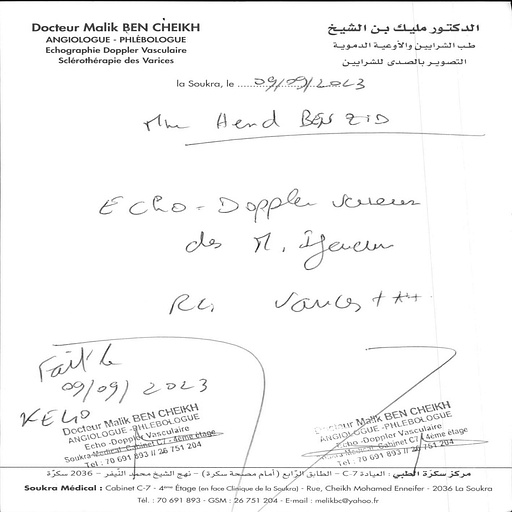 Docteur Malik BEN CHEIKH
ANGIOLOGUE - PHLÉBOLOGUE
Echographie Doppler Vasculaire
Sclérothérapie des Varices
الدكتور مليك بن الشيخ
طب الشرايين والأوعية الدموية
التصوير بالصدى للشرايين
la Soukra, le 09/09/2023
Mme Hend BEN ZID
Echo-Doppler
des M.
varices +++
Fait le
09/09/2023
Docteur Malik BEN CHEIKH
ANGIOLOGUE - PHLEBOLOGUE
Echo-Doppler Vasculaire
Soukra Medical Cabinet C7 / 4eme étage
Tel : 70 691 893 // 26 751 204
Docteur Malik BEN CHEIKH
ANGIOLOGUE - PHLEBOLOGUE
Echo-Doppler Vasculaire
Soukra Medical Cabinet C7 / 4eme étage
Tel : 70 691 893 // 26 751 204
مركز سكرّة الطبي : العيادة C-7 - الطابق الرّابع (أمام مصحة سكرة) - نهج الشيخ محمد النّيفر - 2036 سكرّة
Soukra Médical : Cabinet C-7 - 4ème Étage (en face Clinique de la Soukra) - Rue, Cheikh Mohamed Enneifer - 2036 La Soukra
Tél. : 70 691 893 - GSM : 26 751 204 - E-mail : melikbc@yahoo.fr